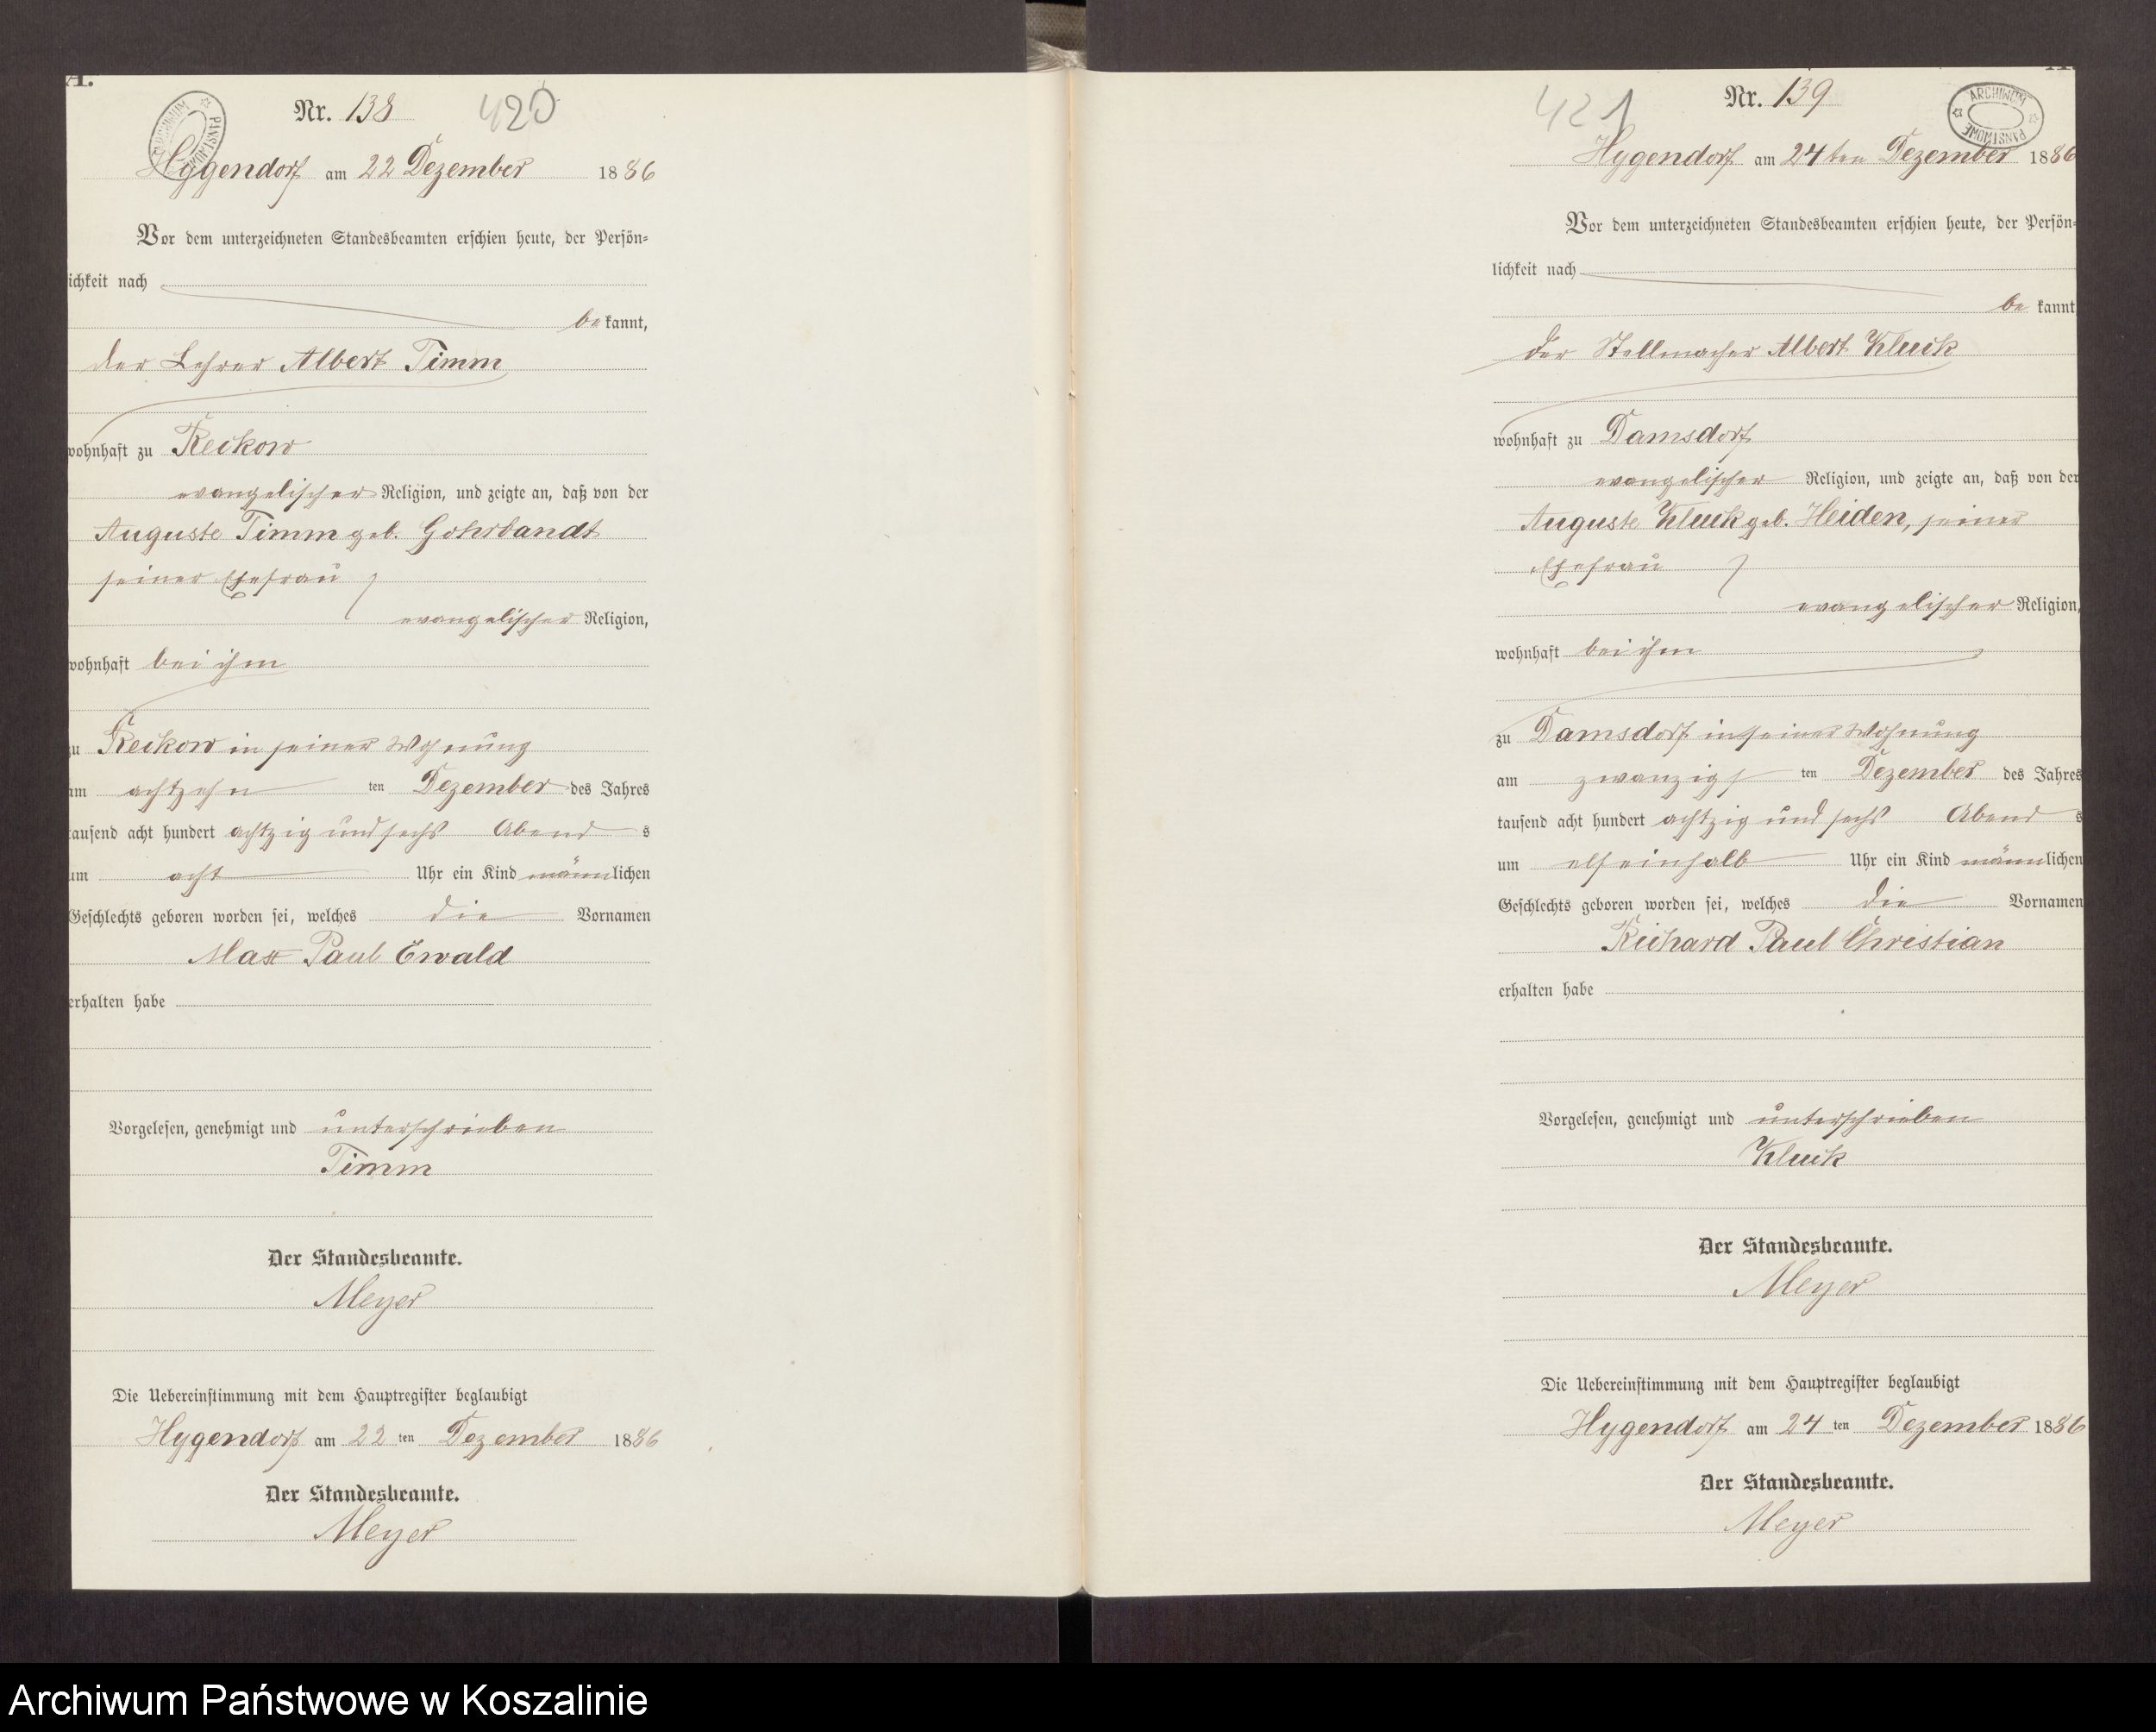 A.
Nr. 138
420
Hygendorf am 22 Dezember 1886
Vor dem unterzeichneten Standesbeamten erschien heute, der Persön-
lichkeit nach
be kannt,
der Lehrer Albert Timm
wohnhaft zu Reckow
evangelischer Religion, und zeigte an, daß von der
Auguste Timm geb. Gohrbandt
seiner Ehefrau
evangelischer Religion,
wohnhaft bei ihm
zu Reckow in seiner Wohnung
am achtzehn ten Dezember des Jahres
tausend acht hundert achtzig und sechs Abend s
um acht Uhr ein Kind männlichen
Geschlechts geboren worden sei, welches die Vornamen
Max Paul Ewald
erhalten habe
Vorgelesen, genehmigt und unterschrieben
Timm
Der Standesbeamte.
Meyer
Die Uebereinstimmung mit dem Hauptregister beglaubigt
Hygendorf am 22 ten Dezember 1886
Der Standesbeamte.
Meyer
421
Nr. 139
ARCHIWUM PAŃSTWOWE
Hygendorf am 24ten Dezember 1886
Vor dem unterzeichneten Standesbeamten erschien heute, der Persön-
lichkeit nach
be kannt,
der Stellmacher Albert Kluck
wohnhaft zu Damsdorf
evangelischer Religion, und zeigte an, daß von der
Auguste Kluck geb. Heiden, seiner
Ehefrau
evangelischer Religion,
wohnhaft bei ihm
zu Damsdorf in seiner Wohnung
am zwanzigs ten Dezember des Jahres
tausend acht hundert achtzig und sechs Abend s
um elf einhalb Uhr ein Kind männlichen
Geschlechts geboren worden sei, welches die Vornamen
Richard Paul Christian
erhalten habe
Vorgelesen, genehmigt und unterschrieben
Kluck
Der Standesbeamte.
Meyer
Die Uebereinstimmung mit dem Hauptregister beglaubigt
Hygendorf am 24 ten Dezember 1886
Der Standesbeamte.
Meyer
Archiwum Państwowe w Koszalinie